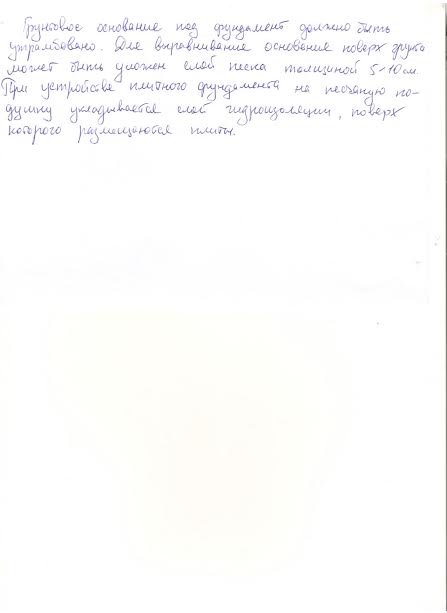 Грунтовое основание под фундамент должно быть
утрамбовано. Для выравнивание основание поверх грунта
может быть уложен слой песка толщиной 5-10 см.
При устройстве плитного фундамента на песчаную по-
душку укладывается слой гидроизоляции, поверх
которого размещаются плиты.